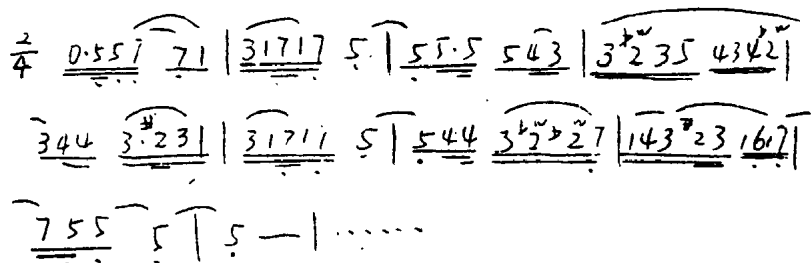 2/4 0·55i 71 | 31717 5 | 55·5 543 | 3♭235 434♭2 |
344 3·#231 | 31711 5 | 544 3♭2♭27 | 143#23 1617 |
755 5 | 5 — | ······